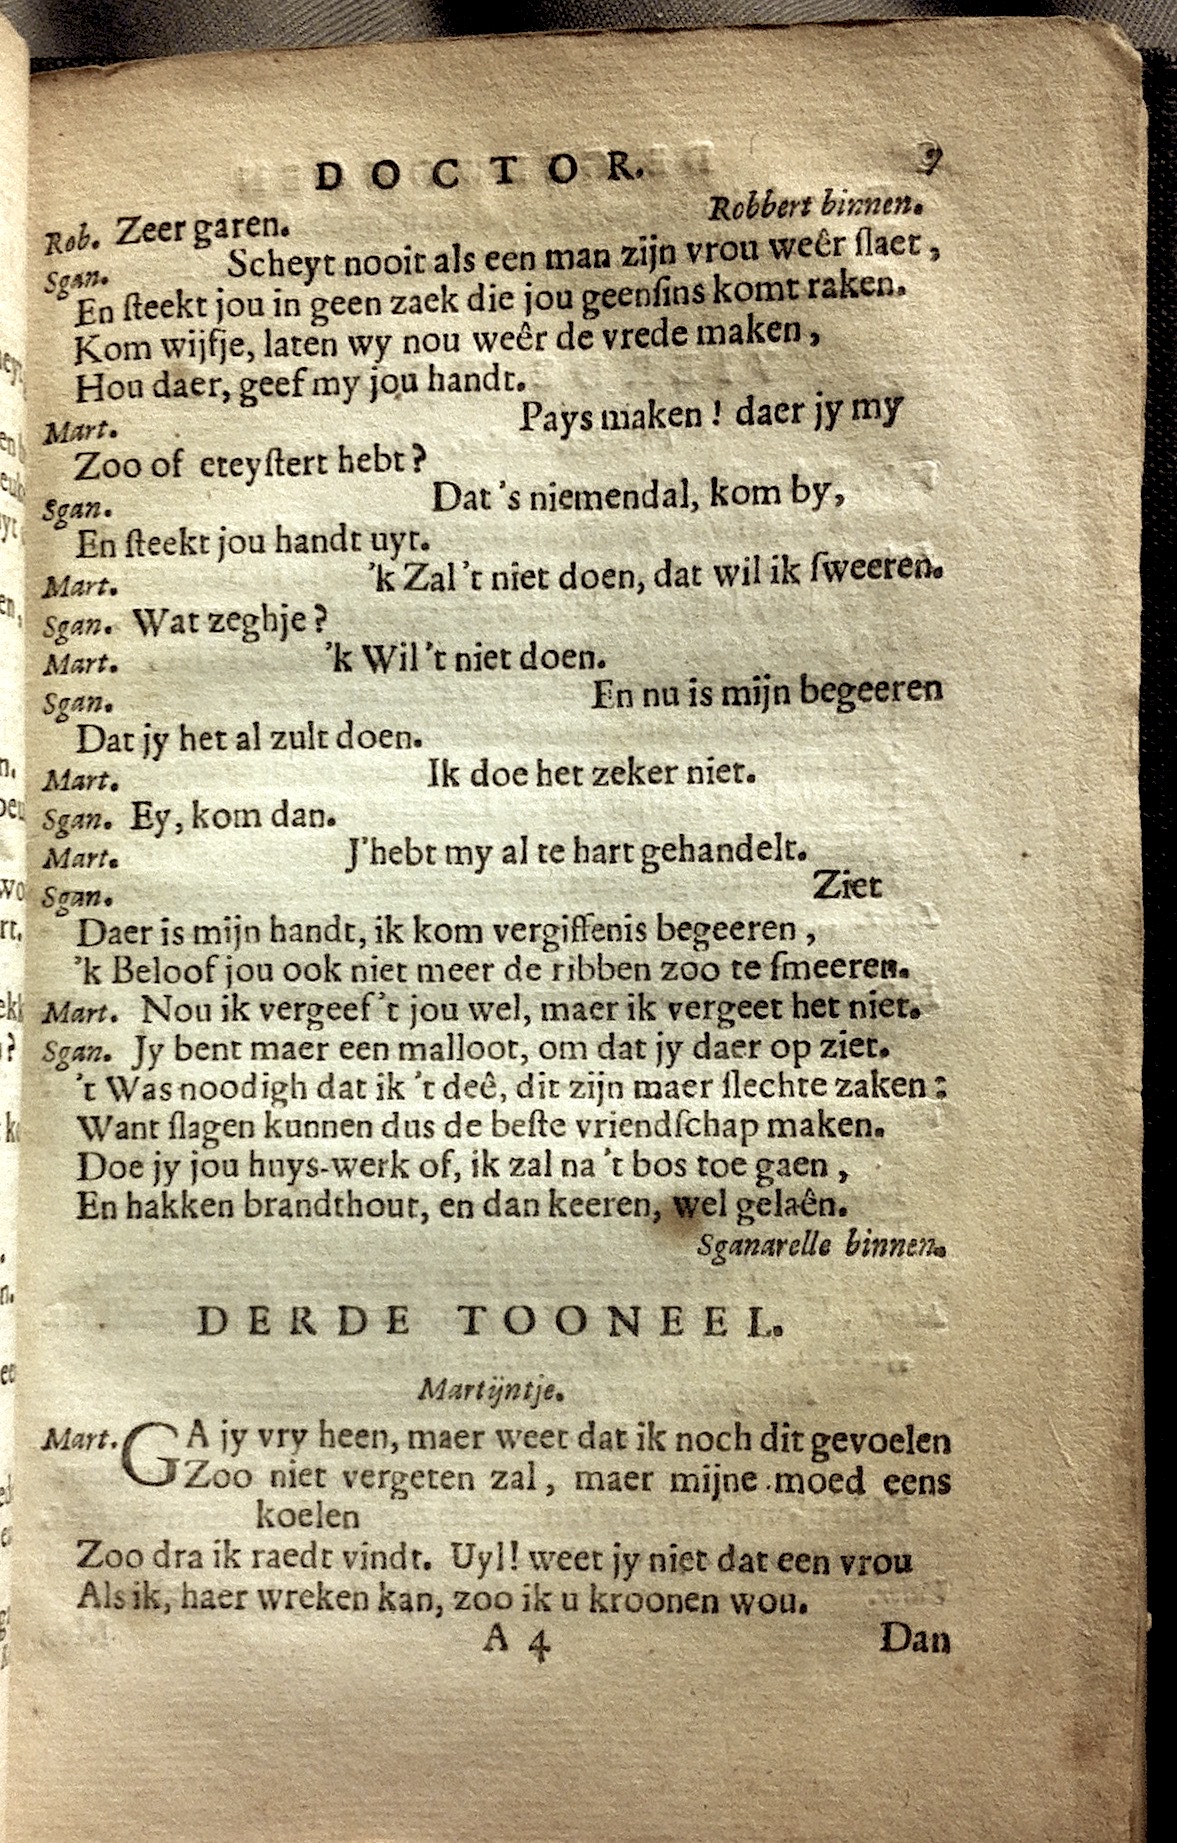 DOCTOR. 9
Rob. Zeer garen. Robbert binnen.
Sgan. Scheyt nooit als een man zijn vrou weêr ſlaet,
En ſteekt jou in geen zaek die jou geenſins komt raken.
Kom wijfje, laten wy nou weêr de vrede maken,
Hou daer, geef my jou handt.
Mart. Pays maken! daer jy my
Zoo of eteyſtert hebt?
Sgan. Dat 's niemendal, kom by,
En ſteekt jou handt uyt.
Mart. 'k Zal 't niet doen, dat wil ik ſweeren.
Sgan. Wat zeghje?
Mart. 'k Wil 't niet doen.
Sgan. En nu is mijn begeeren
Dat jy het al zult doen.
Mart. Ik doe het zeker niet.
Sgan. Ey, kom dan.
Mart. J'hebt my al te hart gehandelt.
Sgan. Ziet
Daer is mijn handt, ik kom vergiffenis begeeren,
'k Beloof jou ook niet meer de ribben zoo te ſmeeren.
Mart. Nou ik vergeef 't jou wel, maer ik vergeet het niet.
Sgan. Jy bent maer een malloot, om dat jy daer op ziet.
't Was noodigh dat ik 't deê, dit zijn maer ſlechte zaken:
Want ſlagen kunnen dus de beſte vriendſchap maken.
Doe jy jou huys-werk of, ik zal na 't bos toe gaen,
En hakken brandthout, en dan keeren, wel gelaên.
Sganarelle binnen.
DERDE TOONEEL.
Martijntje.
Mart. GA jy vry heen, maer weet dat ik noch dit gevoelen
Zoo niet vergeten zal, maer mijne moed eens
koelen
Zoo dra ik raedt vindt. Uyl! weet jy niet dat een vrou
Als ik, haer wreken kan, zoo ik u kroonen wou.
A 4 Dan